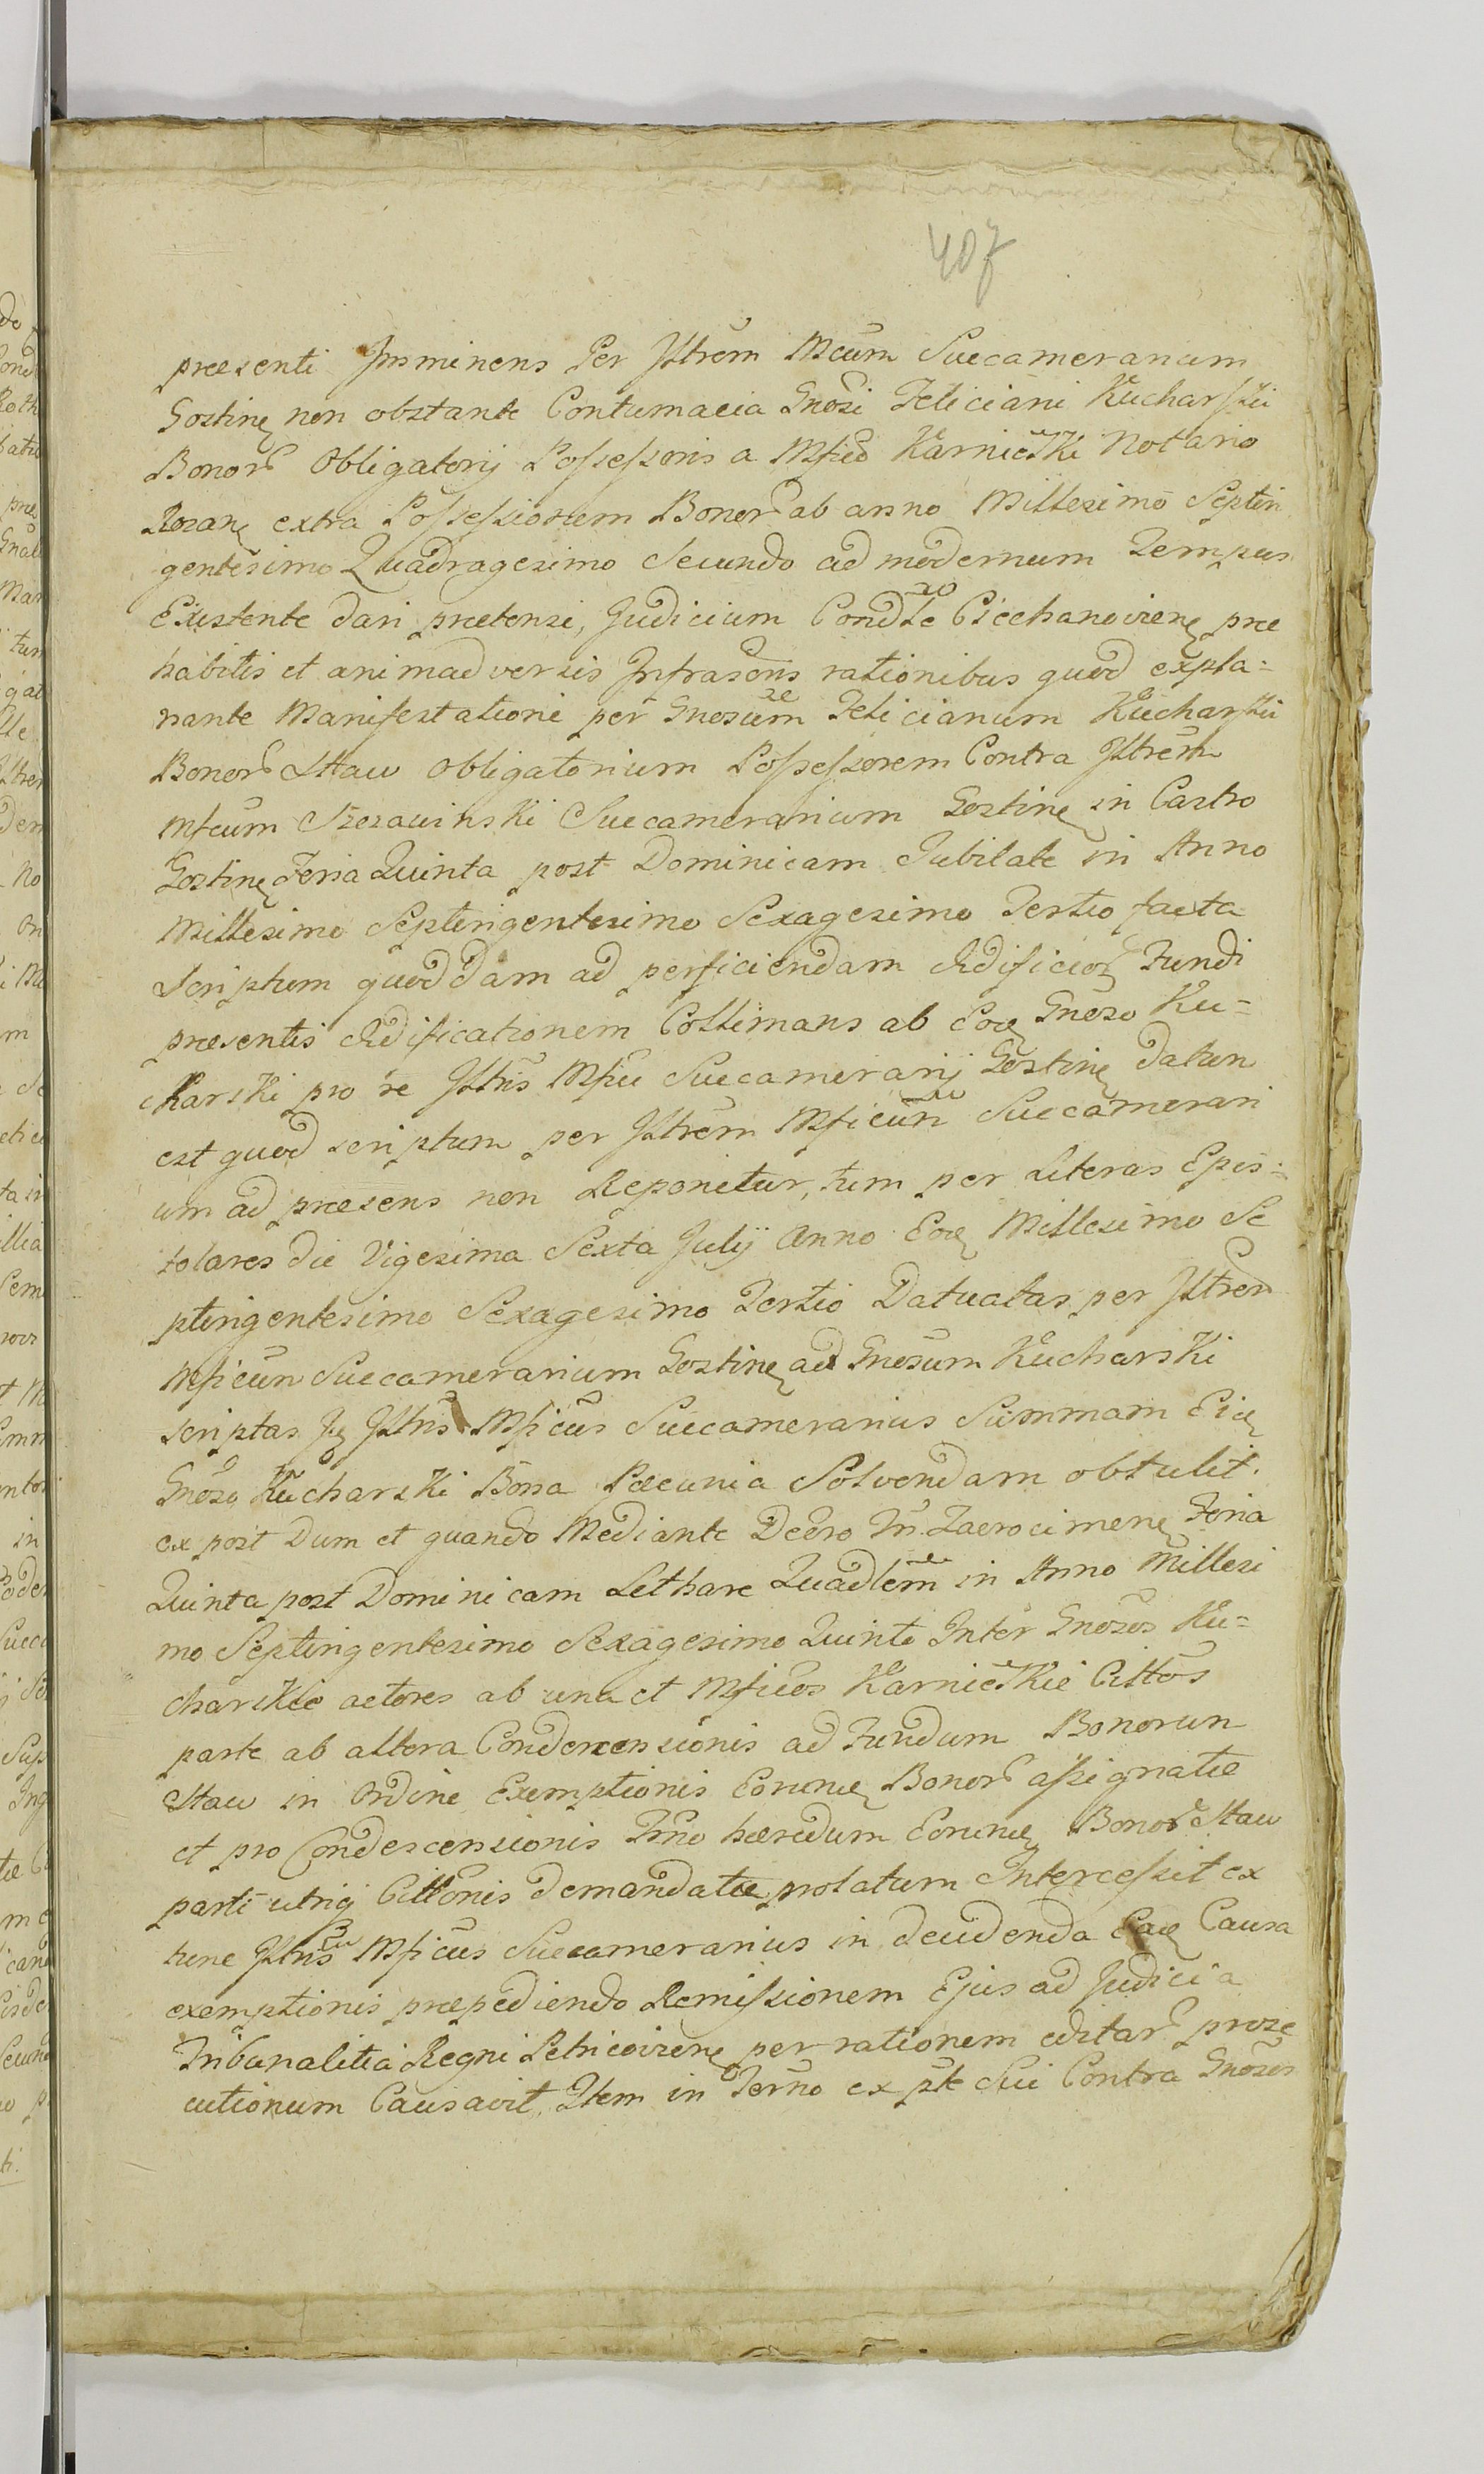 407
præsenti Imminens Per Jllrem Mcum Succameranum
Gostinen non obstante Contumacia Gnosi Feliciani Kucharskii
Bonor Obligatorij Possessoris a Mfico Karnicki Notario
Rozanen extra Possessionem Bonor ab anno Millesimo Septin
gentesimo Quadragesimo Secundo ad modernum Tempus
Existente dari prætensi, Judicium Condle Ciechanovien præ
habitis et animadversis Infrascris rationibus quod expla=
nante Manifestatione per Gnosum Felicianum Kucharski
Bonor Staw Obligatorium Possessorem Contra Jllrem
Mfcum Szczawinski Succamerarium Gostinen in Castro
Gostinen Feria Quinta post Dominicam Jubilate in Anno
Millesimo Septingentesimo Sexagesimo Tertio facta
Scriptum quoddam ad perficiendam Ædificior Fundi
præsentis Ædificationem Collimans ab Eod Gnoso Ku=
charski pro re Jllris Mfci Succamerarij Gostinen datum
est quod scriptum per Jllrem Mficum Succamerari
um ad præsens non Reponitur, tum per Literas Epis=
tolares die Vigesima Sexta Julij Anno Eod Millesimo Se
ptingentesimo Sexagesimo Tertio Datuatas per Jllrem
Mficum Succamerarium Gostinen ad Gnosum Kucharski
scriptas Jllris Mficus Succamerarius Summam Eid
Gnoso Kucharski Bona Pæcunia Solvendam obtulit.
ex post Dum et quando Mediante Decro Feria
Quinta post Dominicam Lethare Quadlem in Anno Millesi
mo Septingentesimo Sexagesimo Quinto Inter Gnosos Ku=
charskie actores ab una et Mficos Karnickie Cittos
parte ab altera Condescensionis ad Fundum Bonorum
Staw in Ordine Exemptionis Eorund Bonor assignatæ
et pro Condescensionis Trno hæredum Eorund Bonor Staw
parti utriq Cittonis demandatæ prolatum Intercessit ex
tunc Jllris Mficus Succamerarius in decidenda Ead Causa
exemptionis præpediendo Remissionem Ejus ad Judicia
Tribunalitia Regni Petricovien per rationem editar prose
cutionum Causavit. Item in Termo ex pte Sui Contra Gnosos